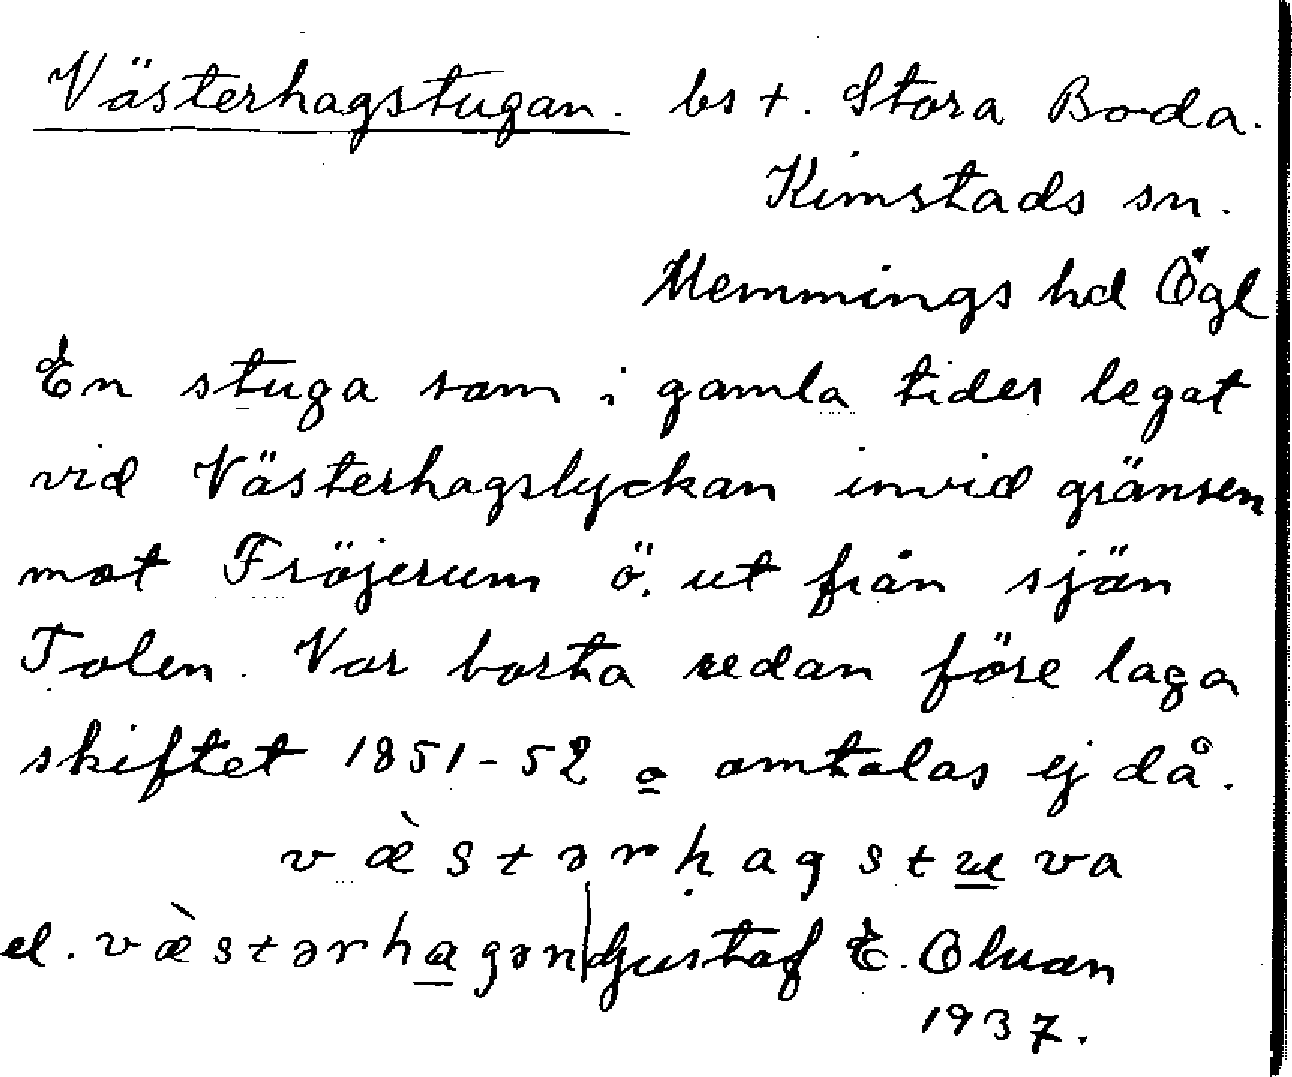 Västerhagstugan. bs †. Stora Boda.
Kimstads sn.
Memmings hd Ögl
En stuga som i gamla tider legat
vid Västerhagslyckan invid gränsen
mot Fröjerum ö. ut från sjön
Tolen. Var borta redan före laga
skiftet 1851-52 o omtalas ej då.
væ̀stərhagstuva
el. væ̀stərhagən Gustaf E.
1937.